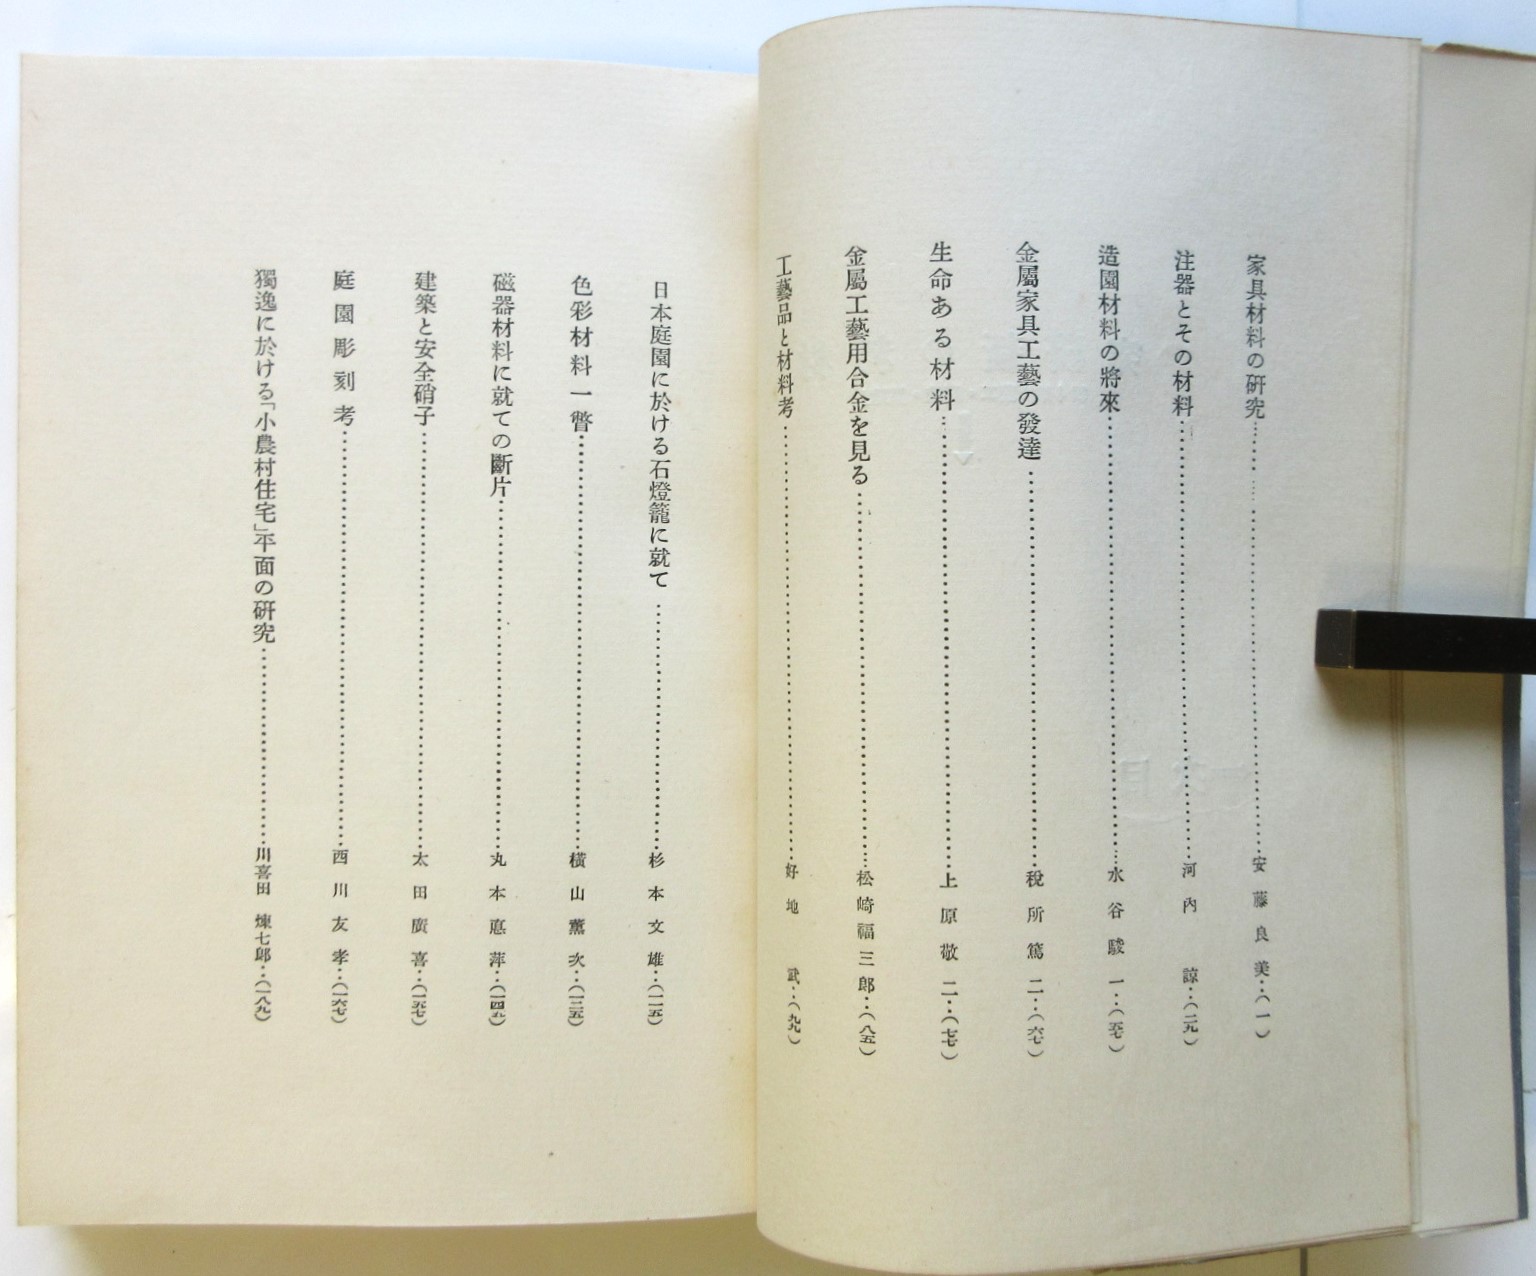 家具材料の研究……安藤良美…(一)
注器とその材料……河内諒…(二九)
造園材料の將來……水谷駿一…(五七)
金屬家具工藝の發達……税所篤二…(六七)
生命ある材料……上原敬二…(七七)
金屬工藝用合金を見る……松崎福三郎…(八五)
工藝品と材料考……好地武…(九九)
日本庭園に於ける石燈籠に就て……杉本文雄…(一一五)
色彩材料一瞥……橫山薫次…(一三五)
磁器材料に就ての斷片……丸本惪萍…(一四五)
建築と安全硝子……太田廣喜…(一五七)
庭園彫刻考……西川友孝…(一六七)
獨逸に於ける「小農村住宅」平面の研究……川喜田煉七郎…(一八九)